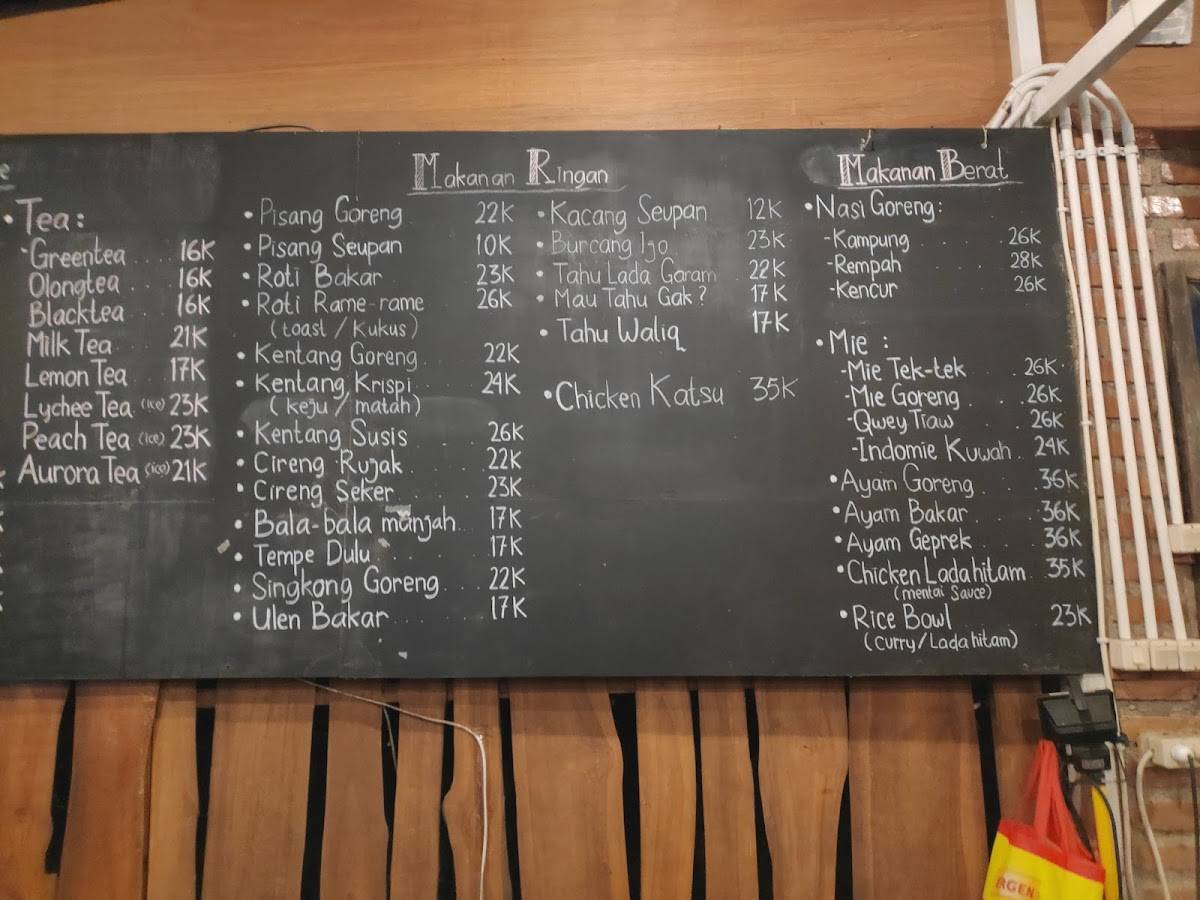 e
• Tea:
-Greentea .... 16K
Olongtea .... 16K
Blacktea .... 16K
Milk Tea 21K
Lemon Tea 17K
Lychee Tea (ice) 23K
Peach Tea (ice) 23K
Aurora Tea (ice) 21K
Makanan Ringan
• Pisang Goreng 22K
• Pisang Seupan 10K
• Roti Bakar 23K
• Roti Rame-rame 26K
(toast / Kukus)
• Kentang Goreng 22K
• Kentang Krispi 24K
(keju / matah)
• Kentang Susis 26K
• Cireng Rujak 22K
• Cireng Seker 23K
• Bala-bala manjah 17K
• Tempe Dulu 17K
• Singkong Goreng 22K
• Ulen Bakar 17K
• Kacang Seupan 12K
• Burcang Ijo 23K
• Tahu Lada Garam 22K
• Mau Tahu Gak? 17K
• Tahu Waliq 17K
• Chicken Katsu 35K
Makanan Berat
• Nasi Goreng:
-Kampung 26K
-Rempah 28K
-Kencur 26K
• Mie :
-Mie Tek-tek 26K
-Mie Goreng 26K
-Qwey Tiaw 26K
-Indomie Kuwah 24K
• Ayam Goreng 36K
• Ayam Bakar 36K
• Ayam Geprek 36K
• Chicken Ladahitam 35K
(mentai Sauce)
• Rice Bowl 23K
(curry/Ladahitam)
ERGEN